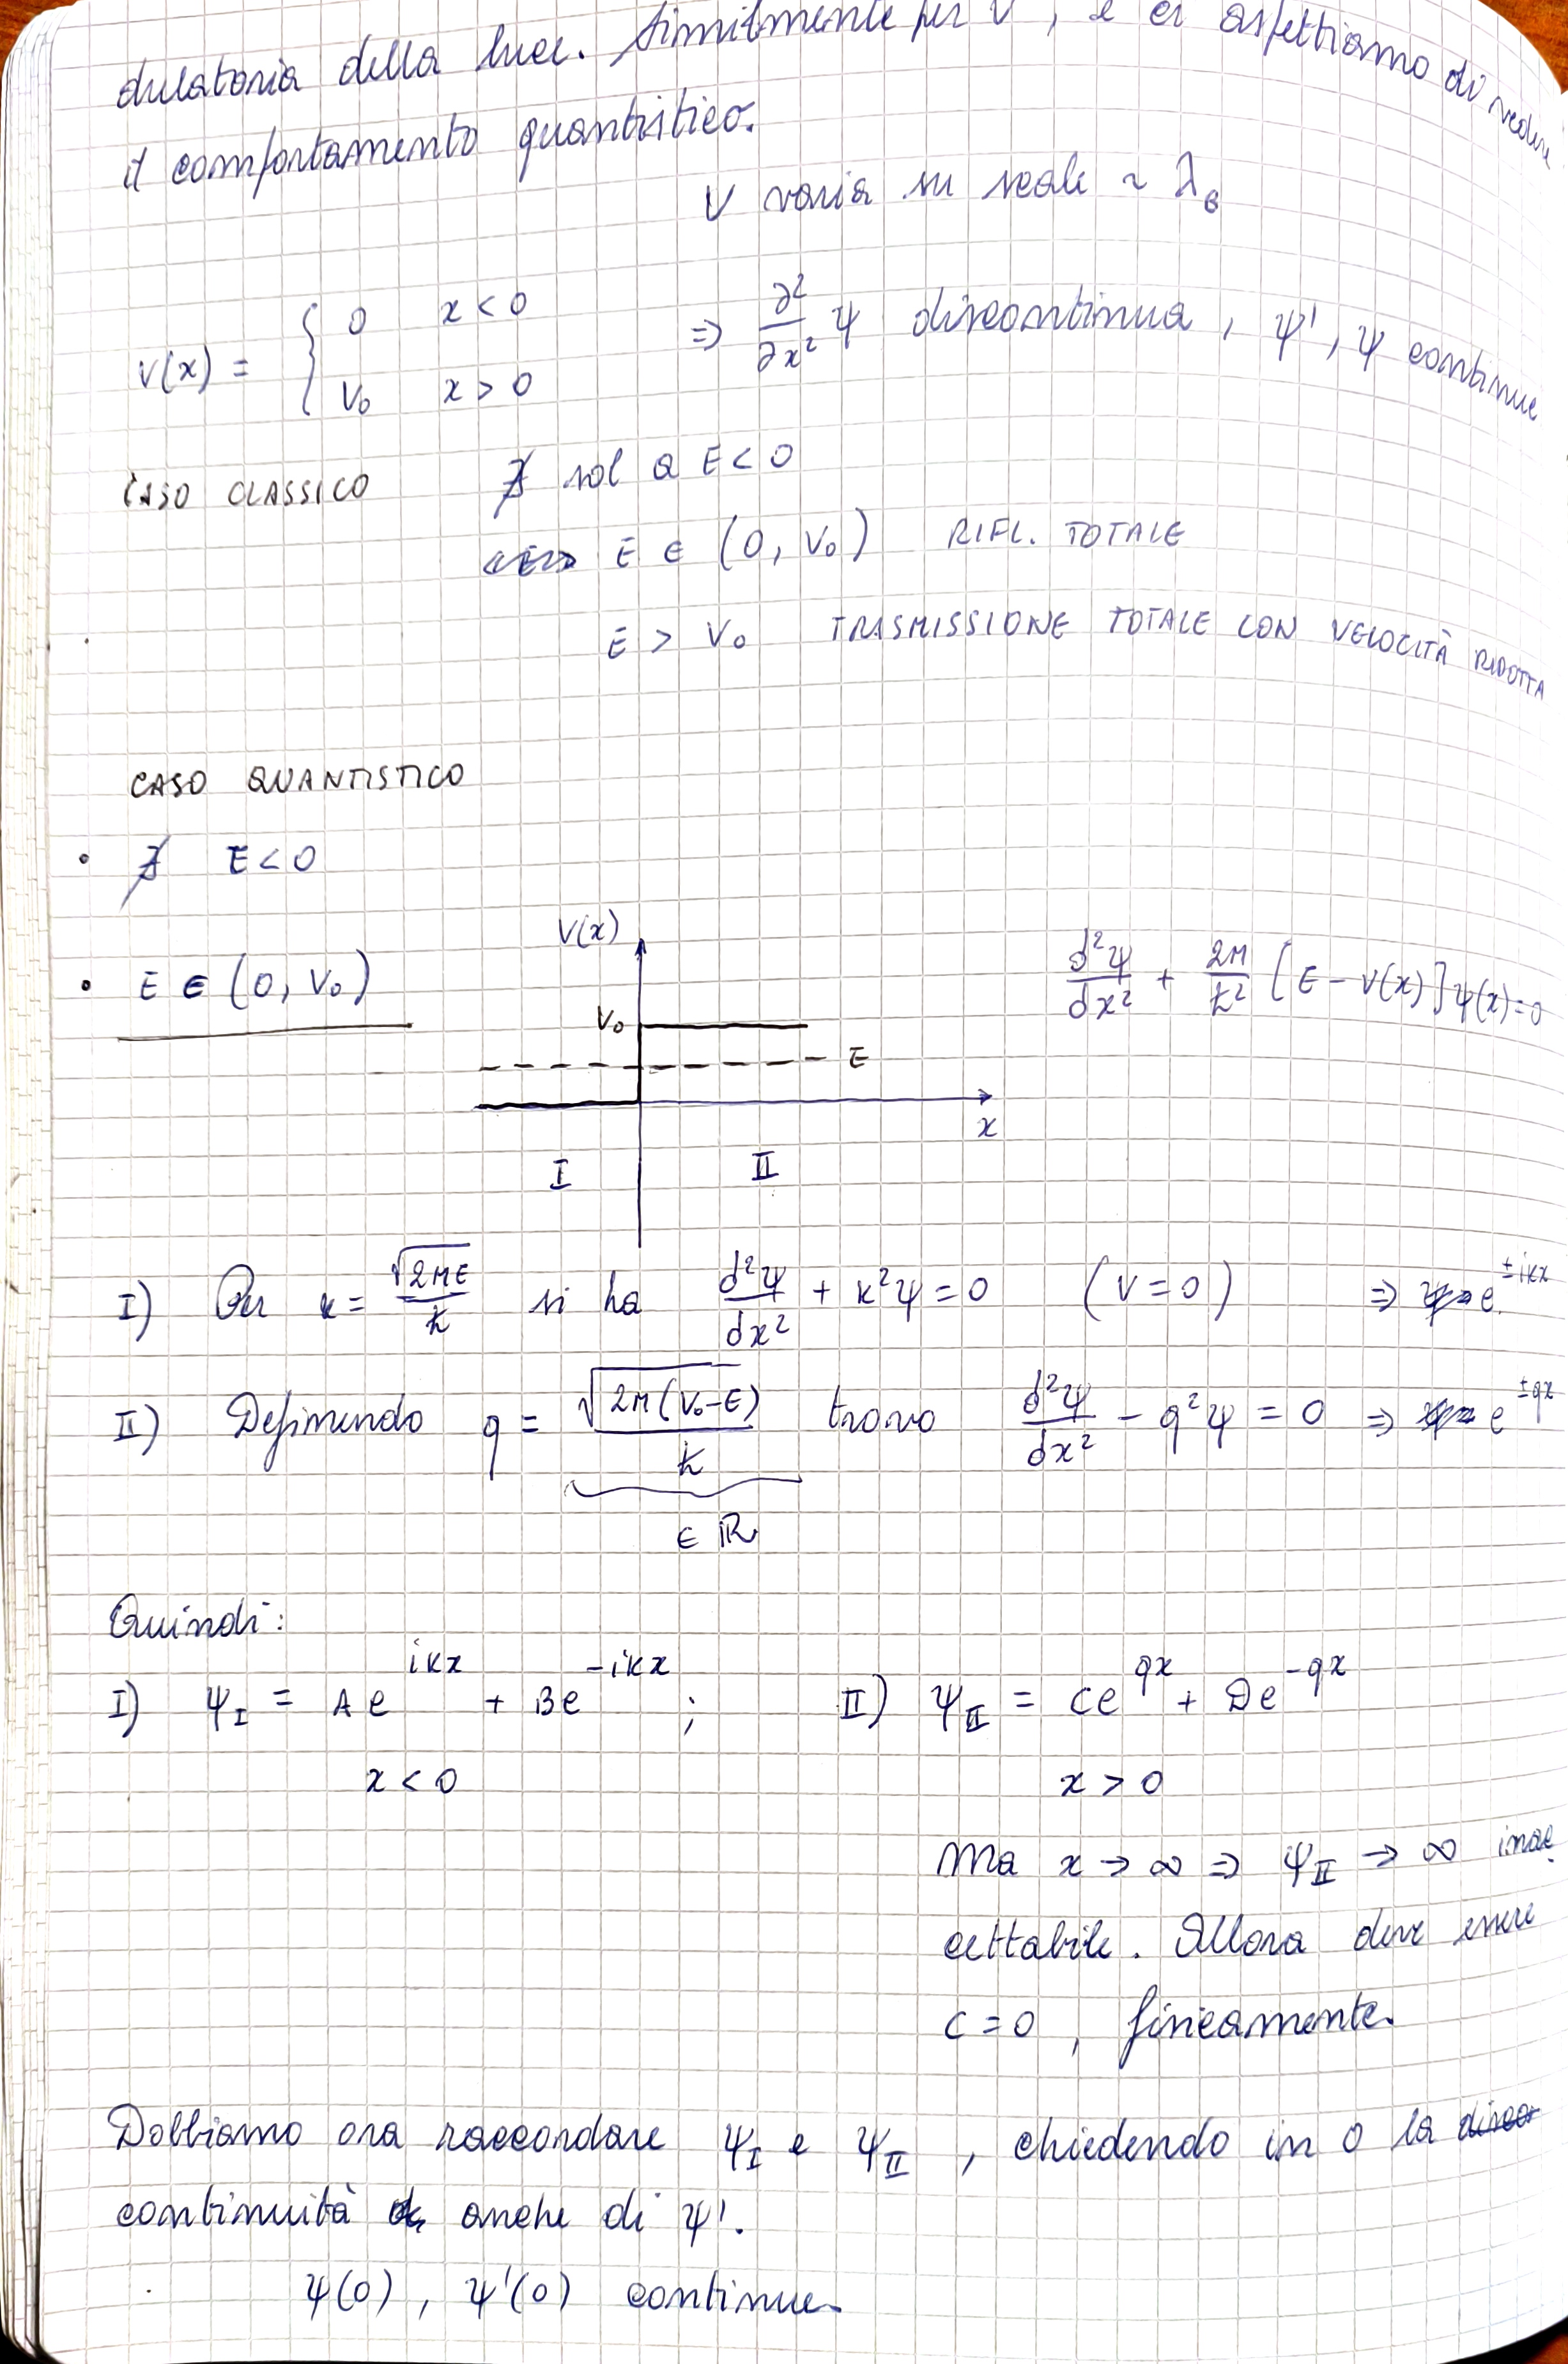 dulatoria della luce. Similmente per V, e ci aspettiamo di vedere
il comportamento quantistico.
V varia su scale ~ λ_B
V(x) = { 0 x < 0
V₀ x > 0
⇒ ∂²/∂x² ψ discontinua, ψ', ψ continue
CASO CLASSICO ∄ sol a E < 0
E ∈ (0, V₀) RIFL. TOTALE
E > V₀ TRASMISSIONE TOTALE CON VELOCITÀ RIDOTTA
CASO QUANTISTICO
• ∄ E < 0
• E ∈ (0, V₀)
V(x)
V₀
E
x
I II
d²ψ/dx² + 2M/ħ² [E - V(x)] ψ(x) = 0
I) Per k = √(2ME)/ħ si ha d²ψ/dx² + k²ψ = 0 (V = 0) ⇒ e^(±ikx)
II) Definendo q = √(2M(V₀-E))/ħ trovo d²ψ/dx² - q²ψ = 0 ⇒ e^(±qx)
∈ ℝ
Quindi:
I) ψ_I = Ae^(ikx) + Be^(-ikx) ; II) ψ_II = Ce^(qx) + De^(-qx)
x < 0 x > 0
Ma x → ∞ ⇒ ψ_II → ∞ inac
cettabile. Allora deve essere
C = 0, fisicamente.
Dobbiamo ora raccordare ψ_I e ψ_II, chiedendo in 0 la
continuità anche di ψ'.
ψ(0), ψ'(0) continue.